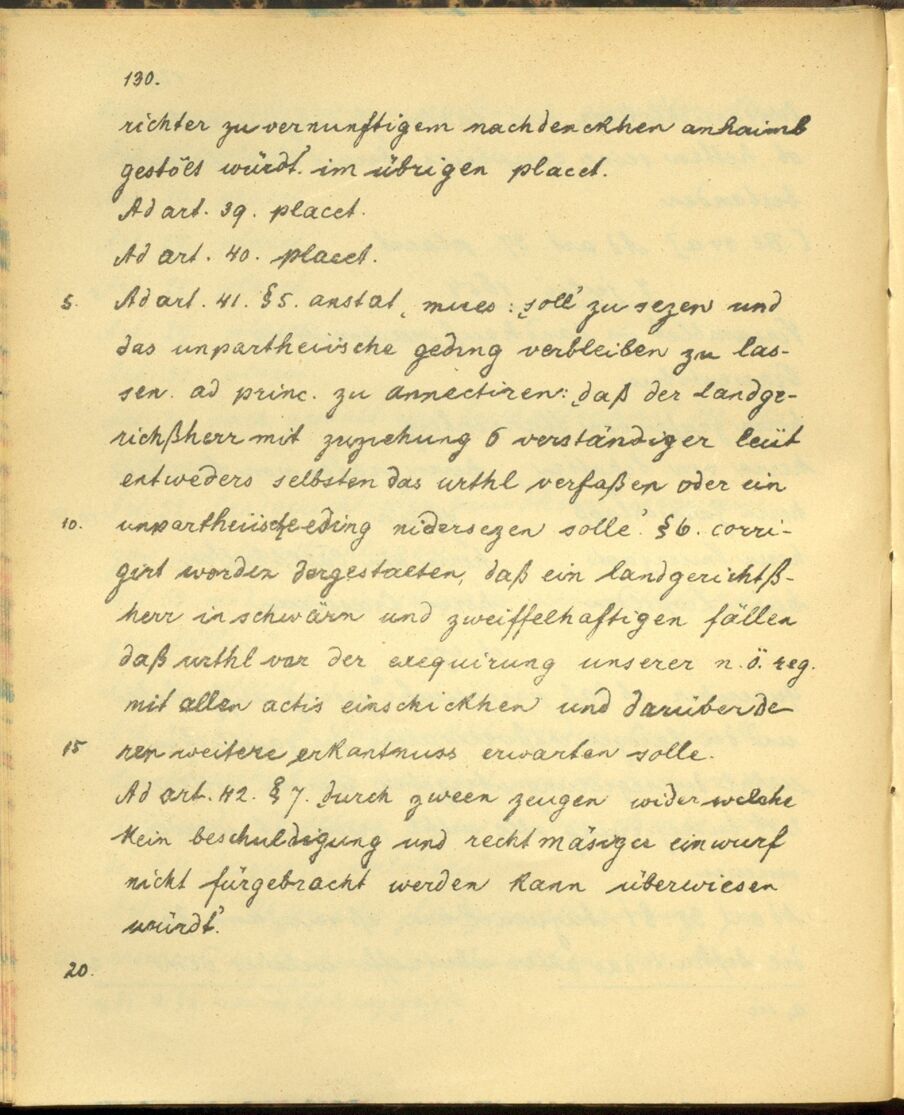 130.
richter zu vernunftigem nachdenckhen anhaimb
gestölt würdt' im übrigen placet.
Ad art. 39. placet.
Ad art. 40. placet.
5. Ad art. 41. §5. anstat ‚mues: ‚soll' zu sezen und
das unpartheiische geding verbleiben zu las-
sen. ad princ. zu annectiren: ‚daß der landge-
richßherr mit zuziehung 6 verständiger leüt
entweders selbsten das urthl verfaßen oder ein
10. unpartheiisch geding nidersezen solle'. §6. corri-
girt worden dergestalten, daß ein landgerichtß-
herr in schwärn und zweiffelhaftigen fällen
daß urthl vor der exequirung unserer n. ö. reg.
mit allen actis einschickhen und darüber de-
15 ren weitere erkantnuss erwarten solle.
Ad art. 42. §7. ‚durch zween zeugen wider welche
kein beschuldigung und rechtmäsiger einwurf
nicht fürgebracht werden kann überwiesen
würdt'.
20.